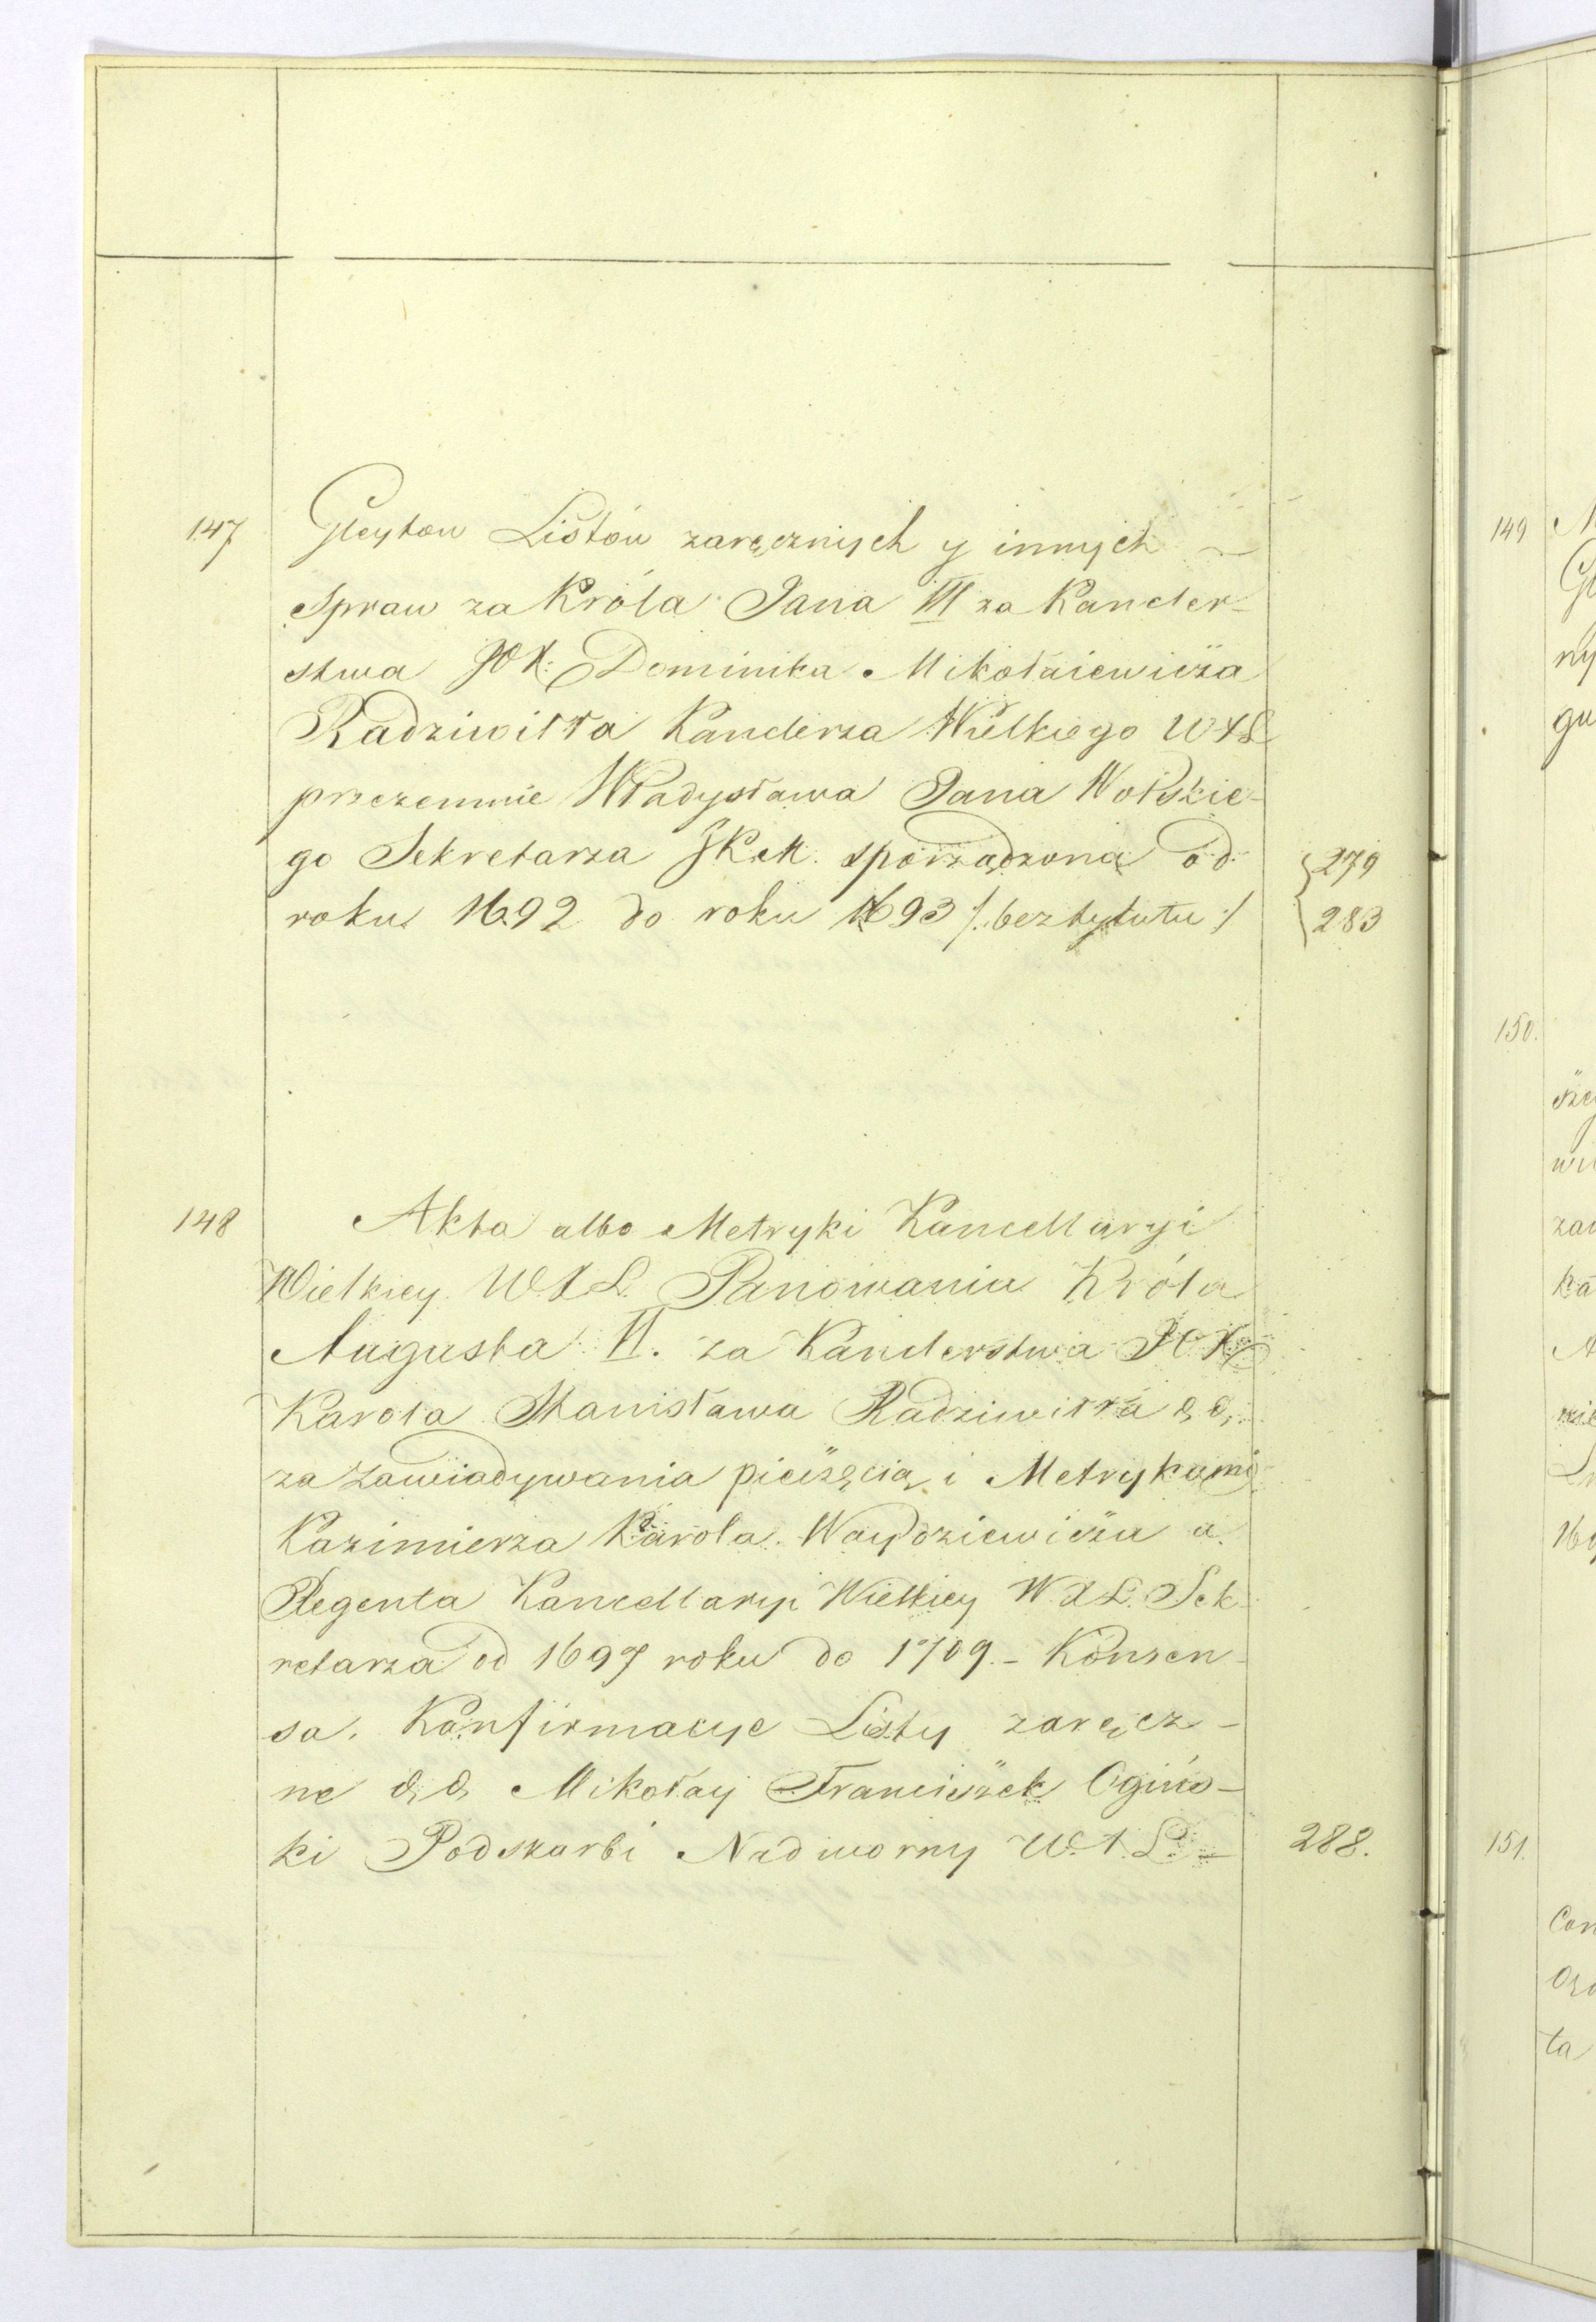 147
Gleytow Listów zaręcznych y innych
Spraw za Króla Jana III za Kancler-
stwa JOX: Dominika Mikołaiewicza
Radziwiłła Kanclerza Wielkiego WXL
przezemnie Władysława Jana Wolskie-
go Sekretarza JKM. sporządzona od
roku 1692 do roku 1693 /: bez tytułu :/
{ 279
283
148
Akta albo Metryki Kancellaryi
Wielkiey WXL Panowania Króla
Augusta II. za Kanclerstwa JOX
Karola Stanisława Radziwiłła &,&,
za zawiadywania pieczęcią i Metrykami
Kazimierza Karola Woydziewicza a
Regenta Kancellaryi Wielkiey WXL. Sek-
retarza od 1697 roku do 1709 - Konsen-
sa, Konfirmacye Listy zaręcz-
ne &,&, Mikołay Franciszek Ogińs-
ki Podskarbi Nadworny W.X.L. -
288.
149
150.
151.